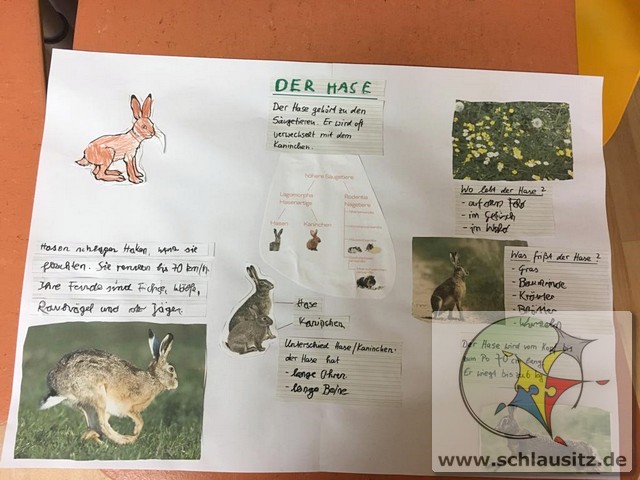 DER HASE
Der Hase gehört zu den
Säugetieren. Er wird oft
verwechselt mit dem
Kaninchen.
Höhere Säugetiere
Lagomorpha
Hasenartige
Rodentia
Nagetiere
Hasen
Kaninchen
Wo lebt der Hase?
- auf dem Feld
- im Gebüsch
- im Wald
Hasen schlagen Haken, wenn sie
flüchten. Sie rennen bis 70 km/h.
Ihre Feinde sind Füchse, Wölfe,
Raubvögel und der Jäger.
Hase
Kaninchen
Unterschied Hase/Kaninchen:
der Hase hat
- lange Ohren
- lange Beine
Was frißt der Hase?
- Gras
- Baumrinde
- Kräuter
- Blätter
- Wurzeln
Der Hase wird vom Kopf bis
zum Po 70 cm lang.
Er wiegt bis
www.schlausitz.de